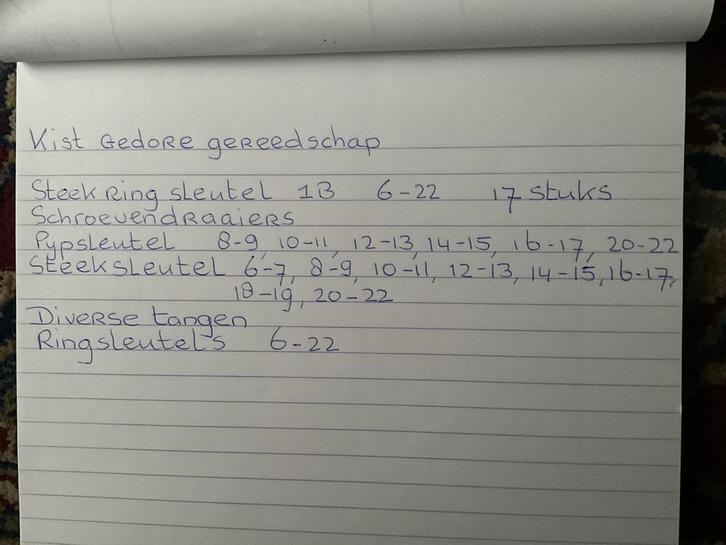 Kist Gedore gereedschap
Steek Ring sleutel 1B 6-22 17 stuks
Schroevendraaiers
Pypsleutel 8-9, 10-11, 12-13, 14-15, 16-17, 20-22
Steeksleutel 6-7, 8-9, 10-11, 12-13, 14-15, 16-17,
18-19, 20-22
Diverse tangen
Ringsleutels 6-22